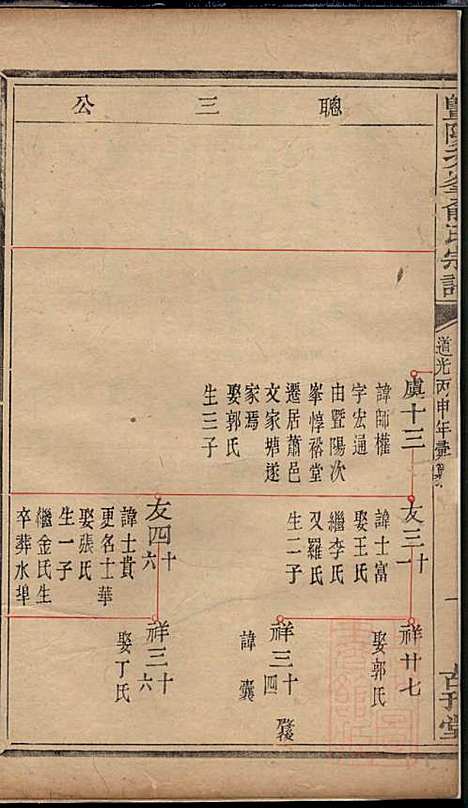 暨陽次峯俞氏宗譜
道光丙申年
一
堂
聰三公
虞十三
諱師權
字宏通
由暨陽次
峯惇裕堂
遷居蕭邑
文家塘遂
家焉
娶郭氏
生三子
友三十一
諱士富
娶王氏
繼李氏
又羅氏
生二子
友四十六
諱士貴
更名士華
娶張氏
生一子
繼金氏生
卒葬水埠
祥廿七
娶郭氏
祥三十四
諱囊
祥三十六
娶丁氏